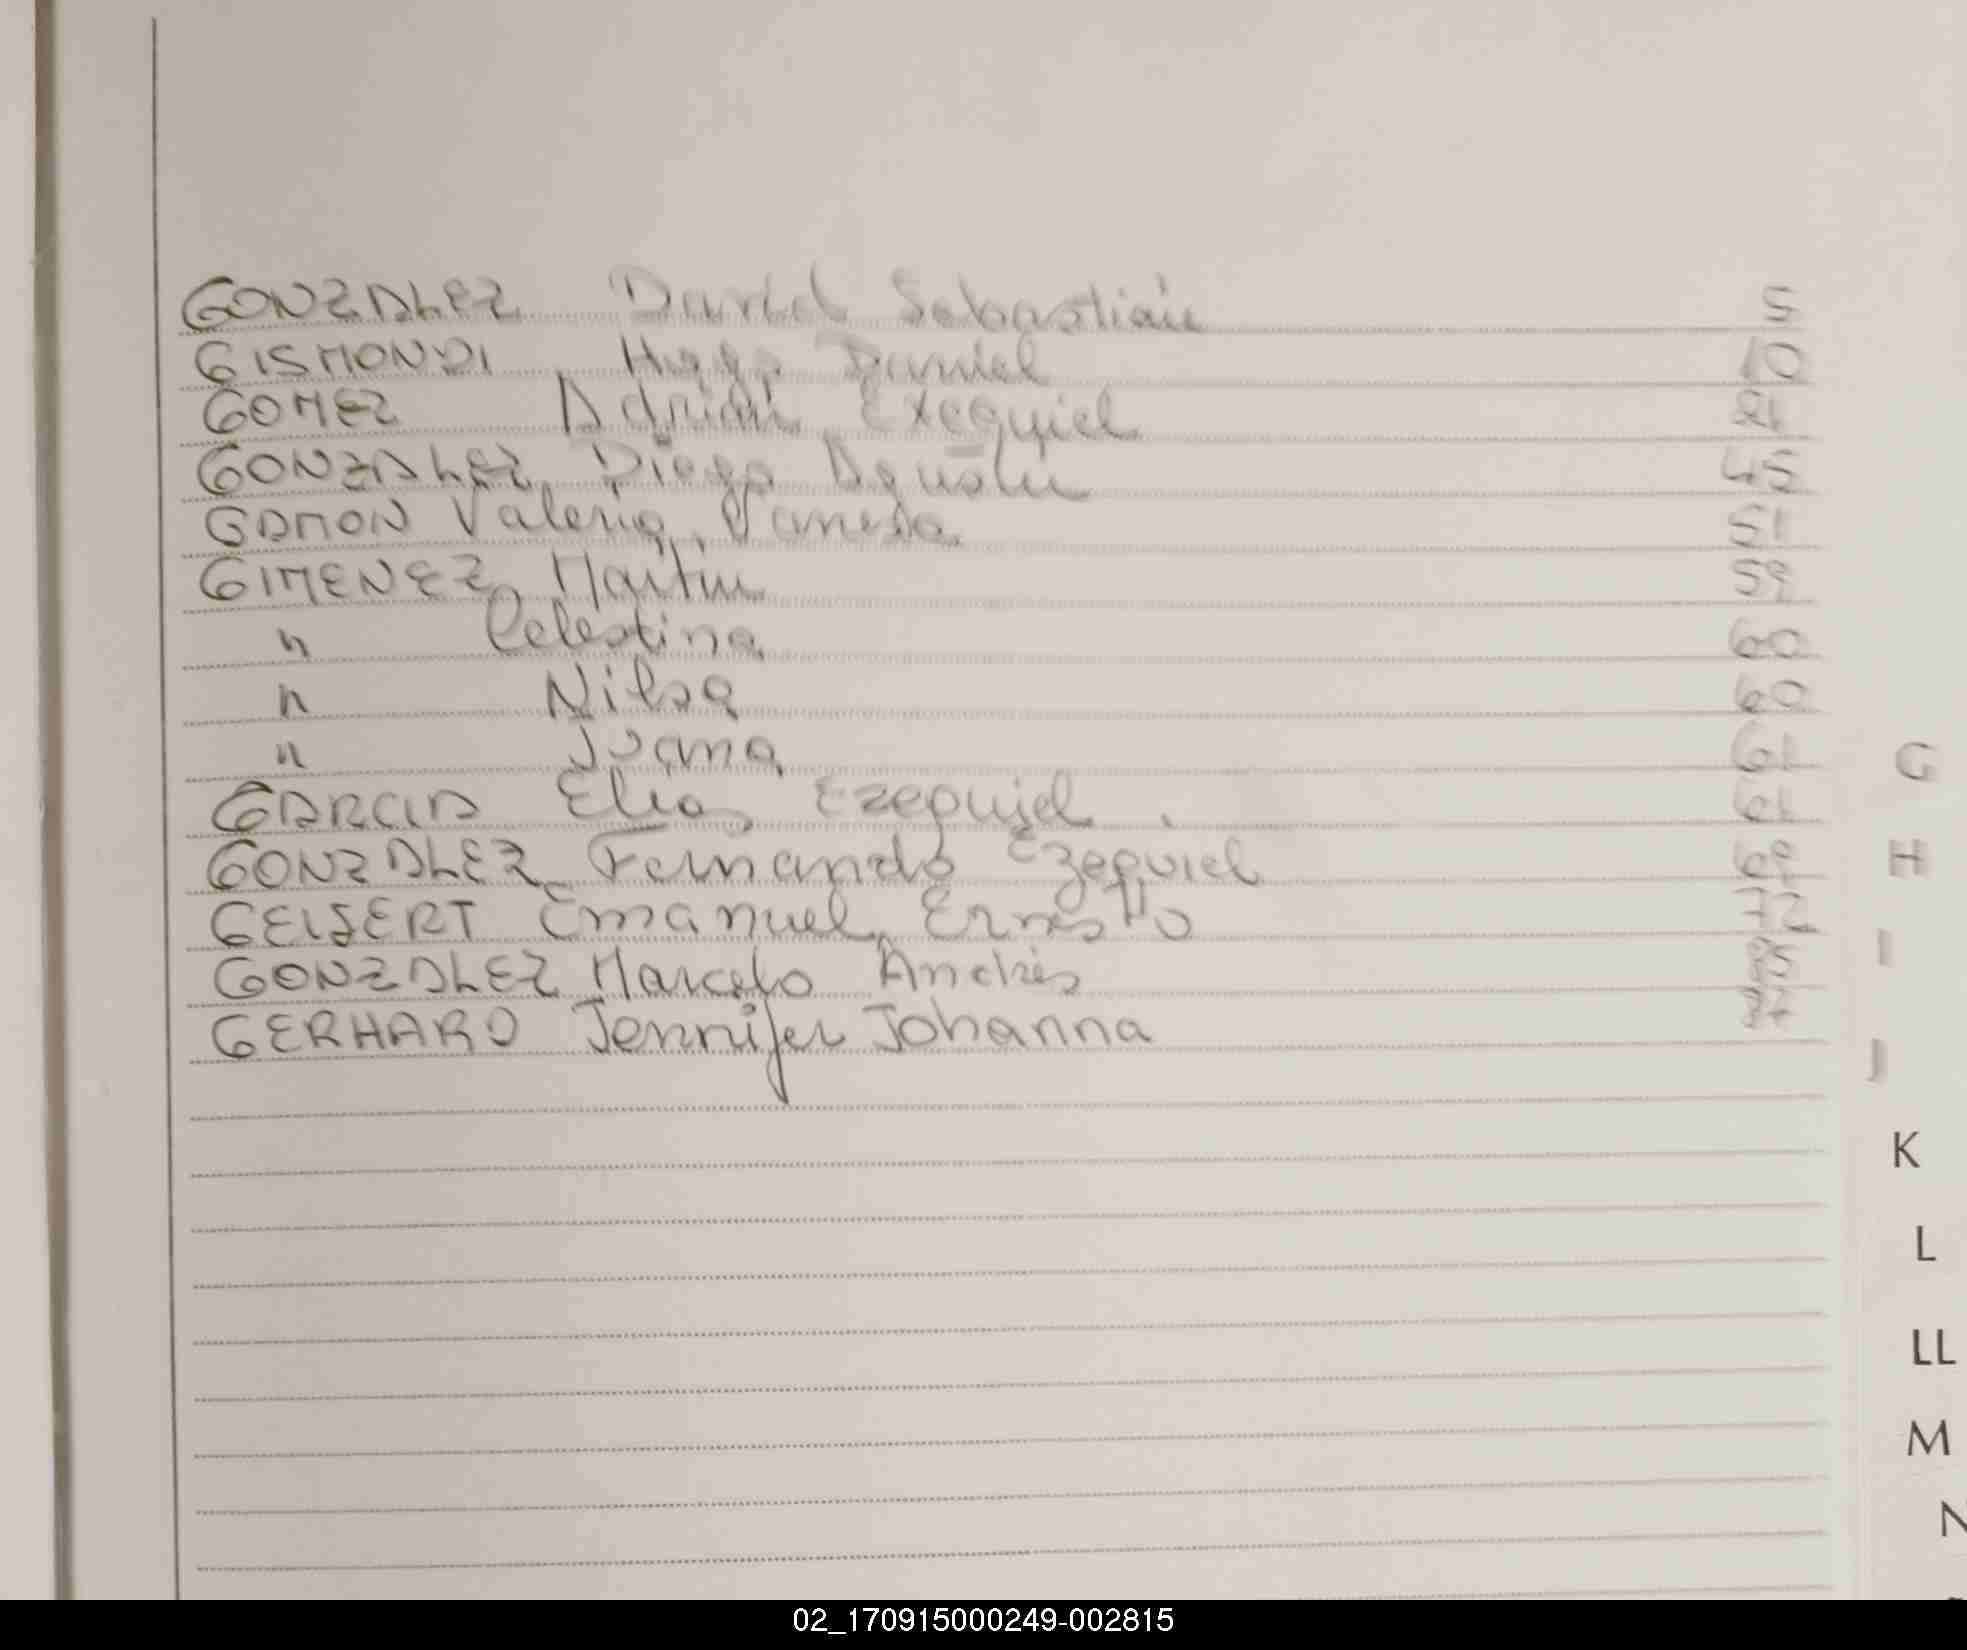 GONZALEZ David Sebastián 5
GISMONDI Hugo Daniel 10
GOMEZ Adrián Exequiel
GONZALEZ Diego Agustín 45
GAMON Valeria Vanesa 51
GIMENEZ Martín 59
" Celestina 60
" Nilsa 60
" Juana 61
GARCIA Elias Ezequiel. 61
GONZALEZ Fernando Ezequiel 69
GEISERT Emanuel Ernesto 72
GONZALEZ Marcelo Andrés 85
GERHARD Jennifer Johanna
G
H
I
J
K
L
LL
M
N
02_170915000249-002815